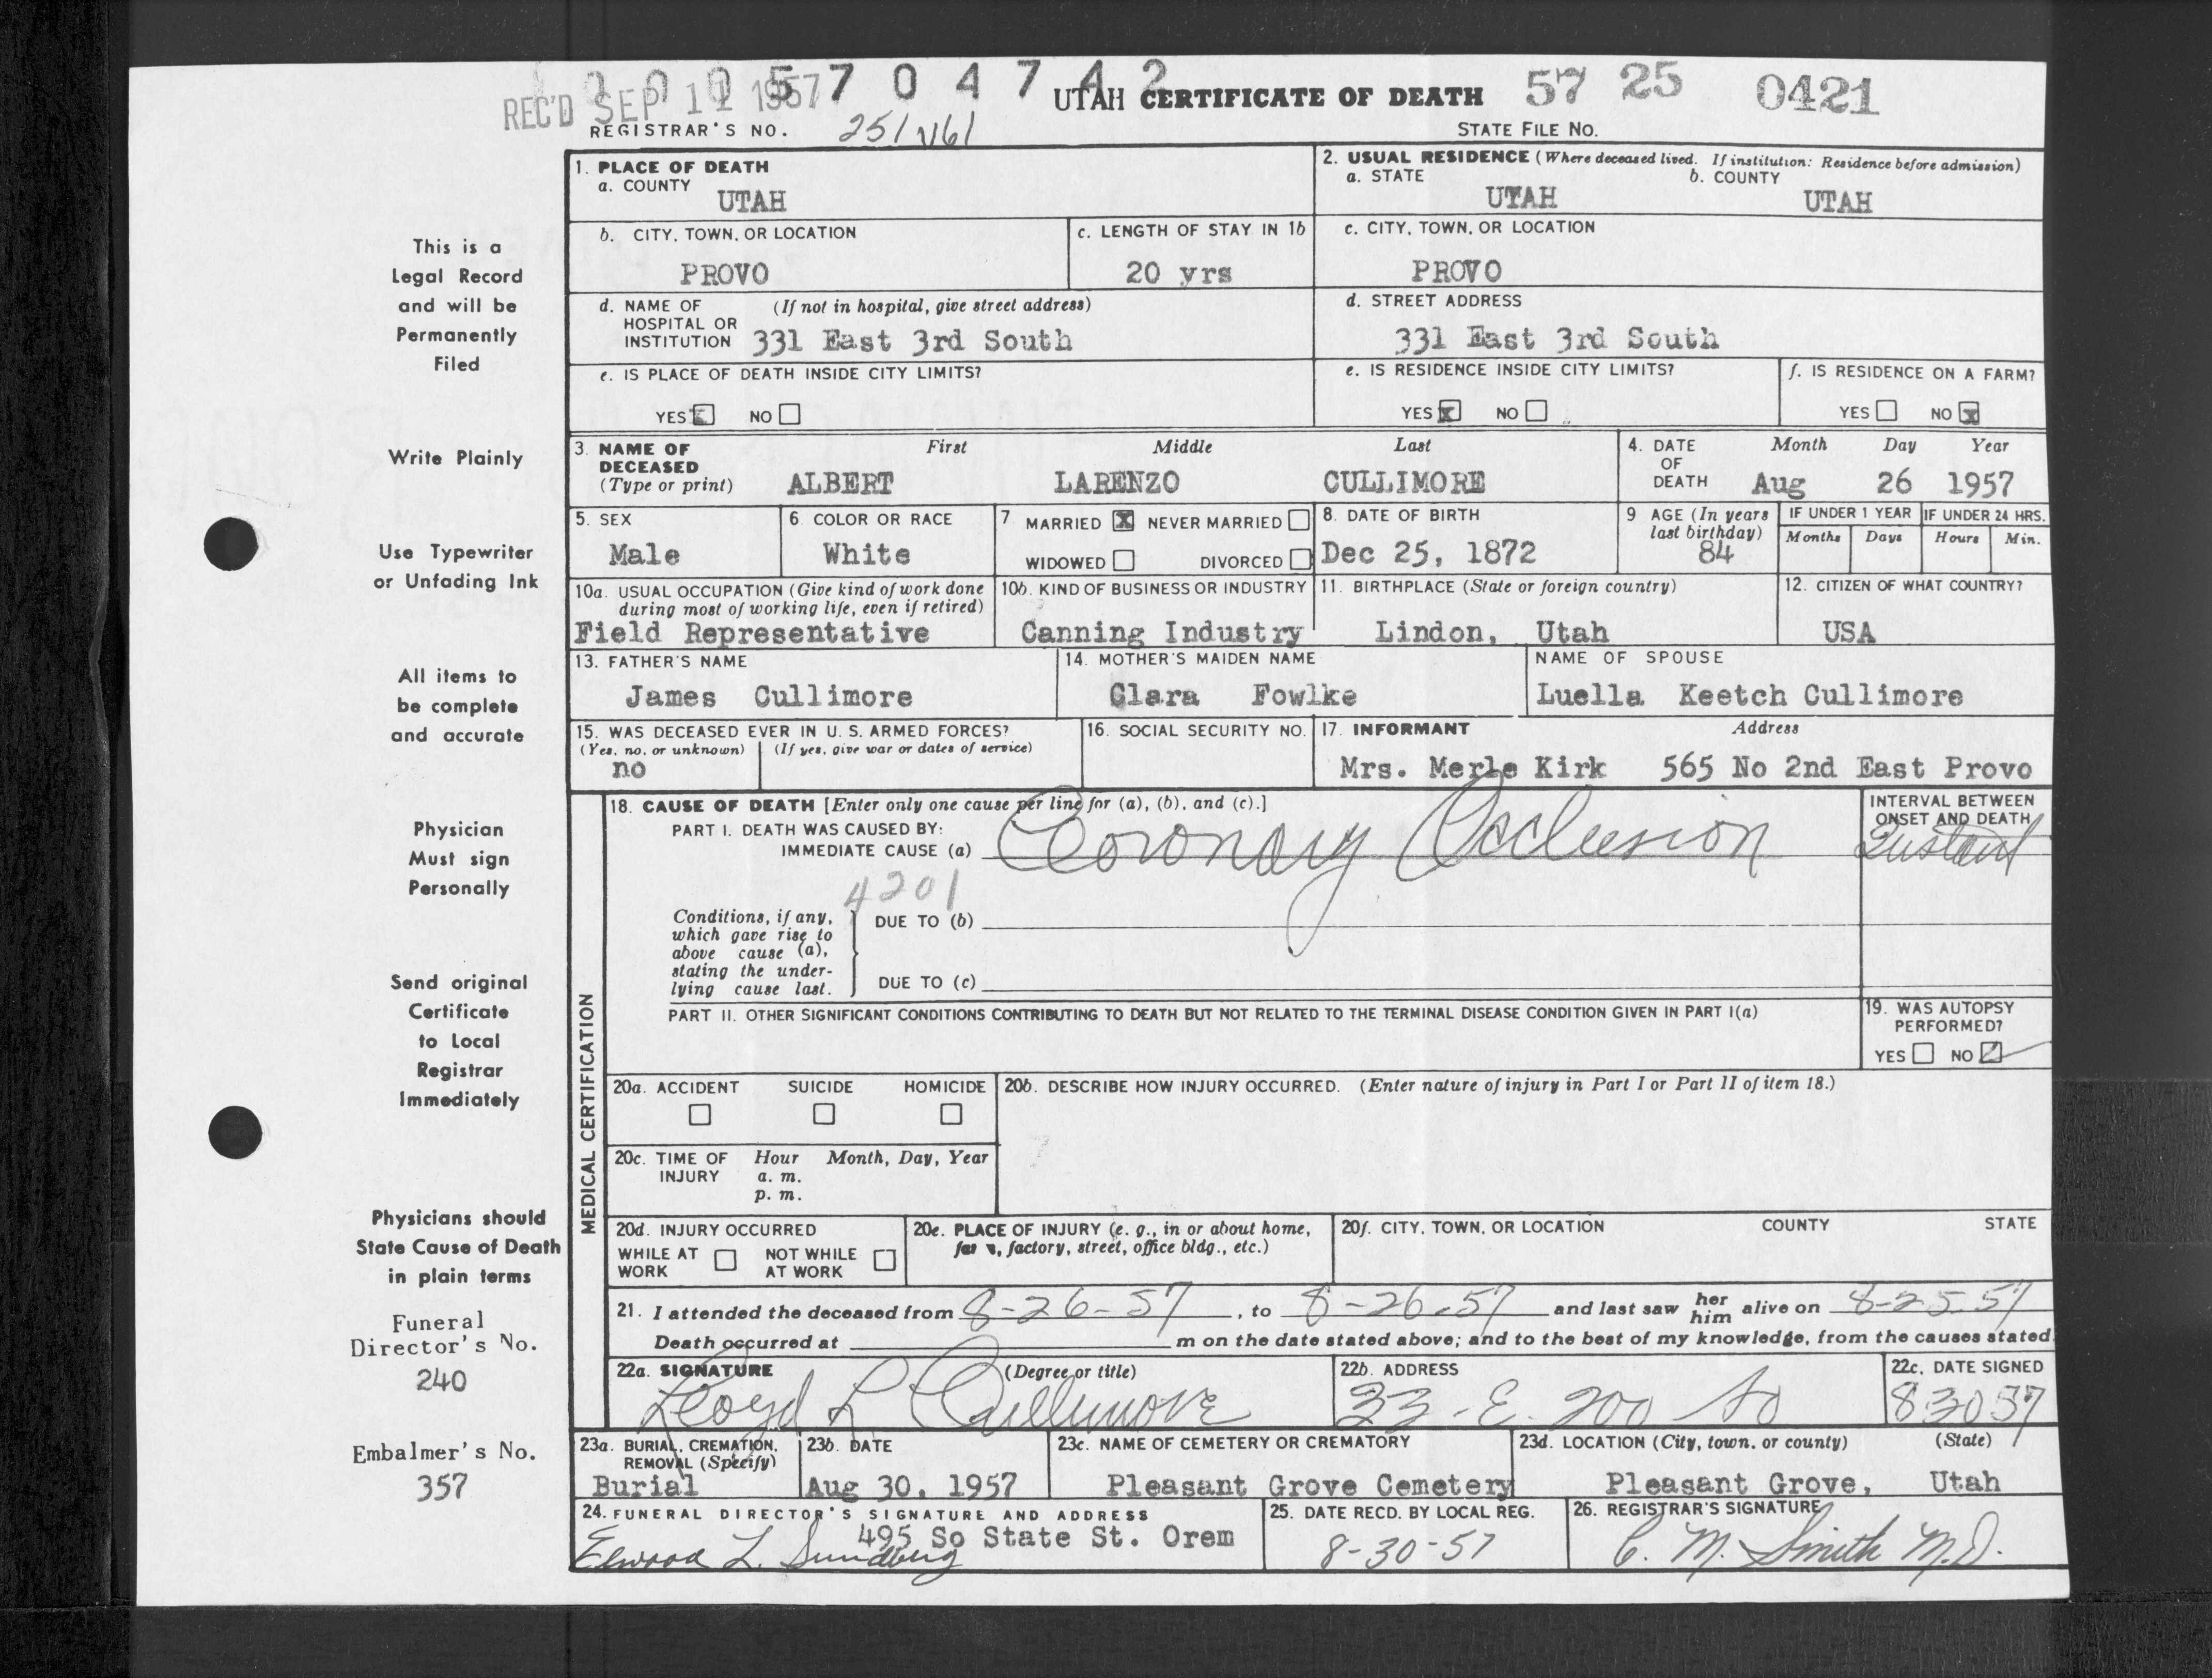 1 0 0 5 7 0 4 7 4 2
REC'D SEP 11 1957
UTAH CERTIFICATE OF DEATH 57 25 0421
REGISTRAR'S NO. 251/161 STATE FILE NO.
This is a
Legal Record
and will be
Permanently
Filed
Write Plainly
Use Typewriter
or Unfading Ink
All items to
be complete
and accurate
Physician
Must sign
Personally
Send original
Certificate
to Local
Registrar
Immediately
Physicians should
State Cause of Death
in plain terms
Funeral
Director's No.
240
Embalmer's No.
357
1. PLACE OF DEATH
a. COUNTY
UTAH
2. USUAL RESIDENCE (Where deceased lived. If institution: Residence before admission)
a. STATE b. COUNTY
UTAH UTAH
b. CITY, TOWN, OR LOCATION
PROVO
c. LENGTH OF STAY IN 1b
20 yrs
c. CITY, TOWN, OR LOCATION
PROVO
d. NAME OF (If not in hospital, give street address)
HOSPITAL OR
INSTITUTION 331 East 3rd South
d. STREET ADDRESS
331 East 3rd South
e. IS PLACE OF DEATH INSIDE CITY LIMITS?
YES X NO
e. IS RESIDENCE INSIDE CITY LIMITS?
YES X NO
f. IS RESIDENCE ON A FARM?
YES NO X
3. NAME OF First Middle Last
DECEASED
(Type or print) ALBERT LARENZO CULLIMORE
4. DATE Month Day Year
OF
DEATH Aug 26 1957
5. SEX
Male
6. COLOR OR RACE
White
7. MARRIED X NEVER MARRIED
WIDOWED DIVORCED
8. DATE OF BIRTH
Dec 25, 1872
9 AGE (In years
last birthday)
84
IF UNDER 1 YEAR
Months Days
IF UNDER 24 HRS.
Hours Min.
10a. USUAL OCCUPATION (Give kind of work done
during most of working life, even if retired)
Field Representative
10b. KIND OF BUSINESS OR INDUSTRY
Canning Industry
11. BIRTHPLACE (State or foreign country)
Lindon, Utah
12. CITIZEN OF WHAT COUNTRY?
USA
13. FATHER'S NAME
James Cullimore
14. MOTHER'S MAIDEN NAME
Clara Fowlke
NAME OF SPOUSE
Luella Keetch Cullimore
15. WAS DECEASED EVER IN U. S. ARMED FORCES?
(Yes, no, or unknown) (If yes, give war or dates of service)
no
16. SOCIAL SECURITY NO.
17. INFORMANT Address
Mrs. Merle Kirk 565 No 2nd East Provo
MEDICAL CERTIFICATION
18. CAUSE OF DEATH [Enter only one cause per line for (a), (b), and (c).]
PART I. DEATH WAS CAUSED BY:
IMMEDIATE CAUSE (a) Coronary Occlusion
INTERVAL BETWEEN
ONSET AND DEATH
Instant
4201
Conditions, if any,
which gave rise to
above cause (a),
stating the under-
lying cause last.
DUE TO (b)
DUE TO (c)
PART II. OTHER SIGNIFICANT CONDITIONS CONTRIBUTING TO DEATH BUT NOT RELATED TO THE TERMINAL DISEASE CONDITION GIVEN IN PART I(a)
19. WAS AUTOPSY
PERFORMED?
YES NO ✓
20a. ACCIDENT SUICIDE HOMICIDE
20b. DESCRIBE HOW INJURY OCCURRED. (Enter nature of injury in Part I or Part II of item 18.)
20c. TIME OF Hour Month, Day, Year
INJURY a. m.
p. m.
20d. INJURY OCCURRED
WHILE AT NOT WHILE
WORK AT WORK
20e. PLACE OF INJURY (e. g., in or about home,
farm, factory, street, office bldg., etc.)
20f. CITY, TOWN, OR LOCATION COUNTY STATE
21. I attended the deceased from 8-26-57, to 8-26-57 and last saw her him alive on 8-25-57
Death occurred at m on the date stated above; and to the best of my knowledge, from the causes stated
22a. SIGNATURE (Degree or title)
Lloyd L Cullimore
22b. ADDRESS
33 - E. 200 So
22c. DATE SIGNED
83057
23a. BURIAL, CREMATION,
REMOVAL (Specify)
Burial
23b. DATE
Aug 30, 1957
23c. NAME OF CEMETERY OR CREMATORY
Pleasant Grove Cemetery
23d. LOCATION (City, town, or county) (State)
Pleasant Grove, Utah
24. FUNERAL DIRECTOR'S SIGNATURE AND ADDRESS
495 So State St. Orem
Elwood L. Sundberg
25. DATE RECD. BY LOCAL REG.
8-30-57
26. REGISTRAR'S SIGNATURE
C. M. Smith M.D.